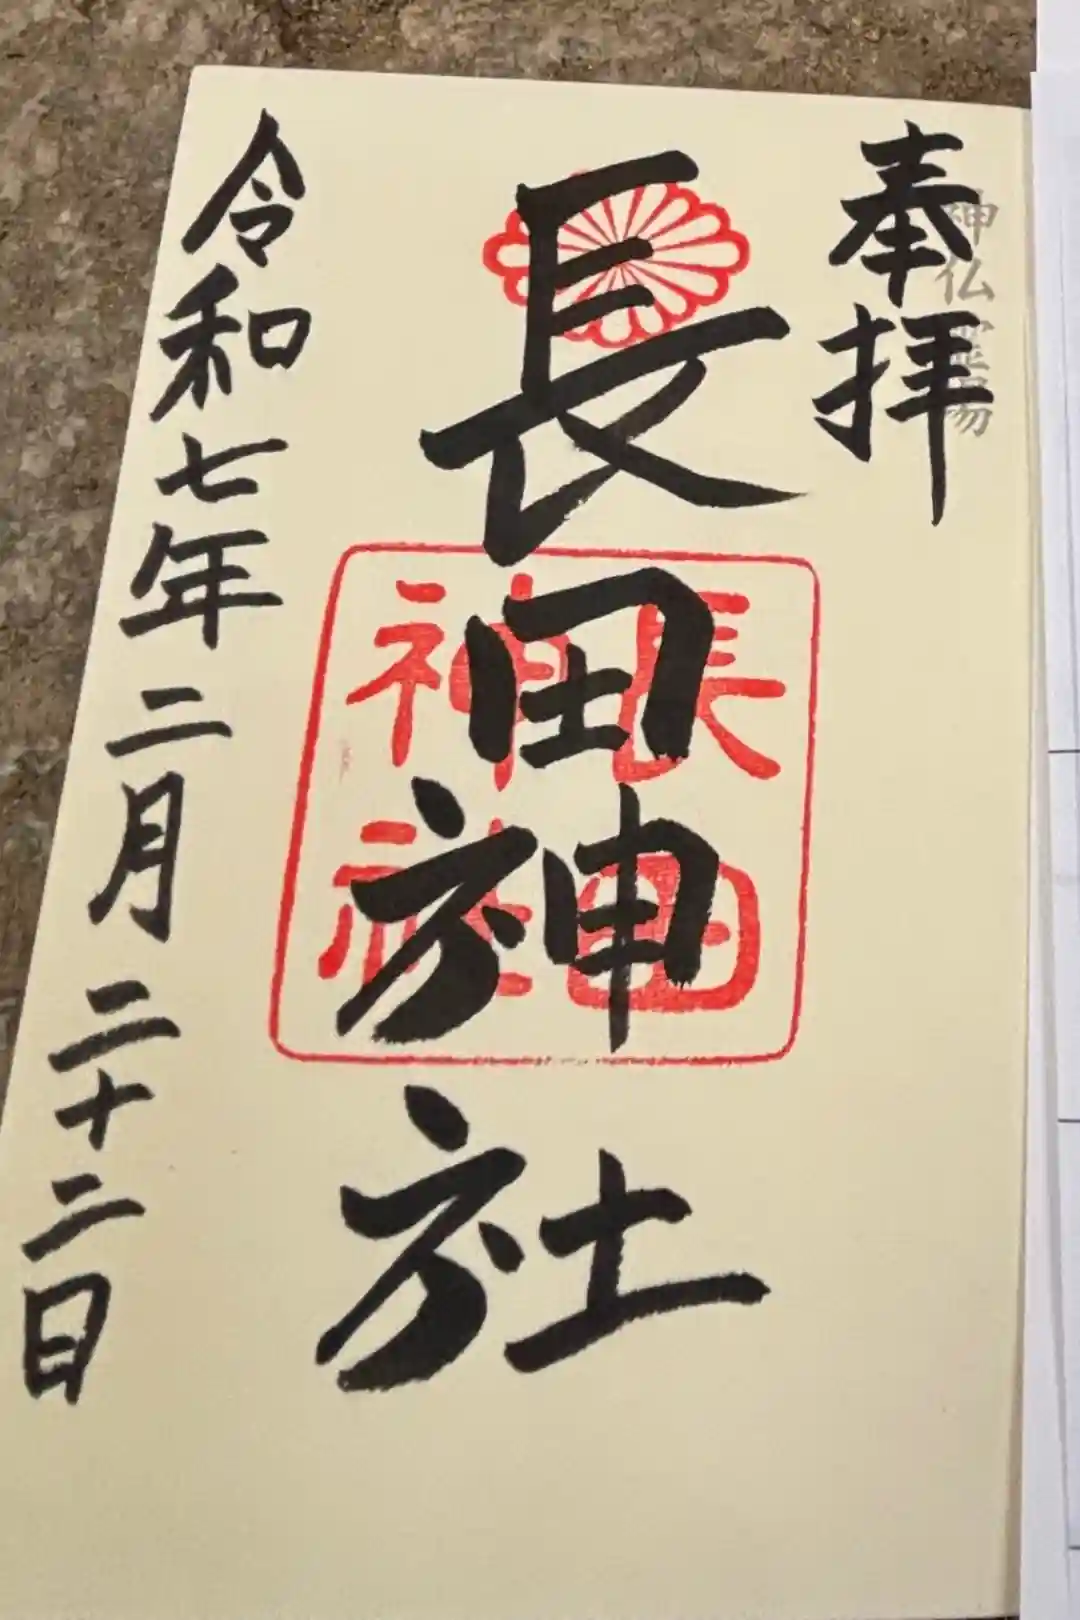 奉拝
神仏霊場
長田神社
長田
神社
令和七年二月二十二日